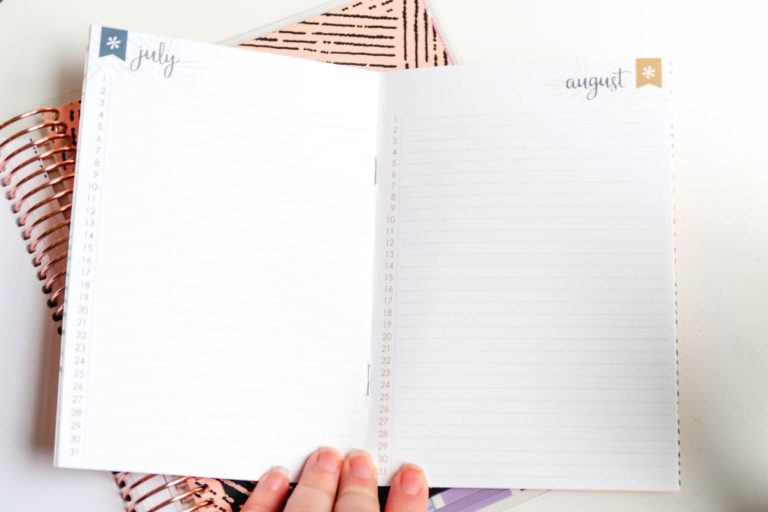 july
1
2
3
4
5
6
7
8
9
10
11
12
13
14
15
16
17
18
19
20
21
22
23
24
25
26
27
28
29
30
31
august
1
2
3
4
5
6
7
8
9
10
11
12
13
14
15
16
17
18
19
20
21
22
23
24
25
26
27
28
29
30
31